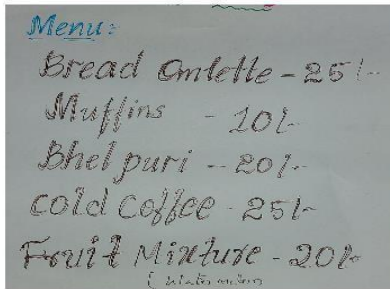 Menu:
Bread Omlette - 25/-
Muffins - 10/-
Bhel puri - 20/-
Cold Coffee - 25/-
Fruit Mixture - 20/-